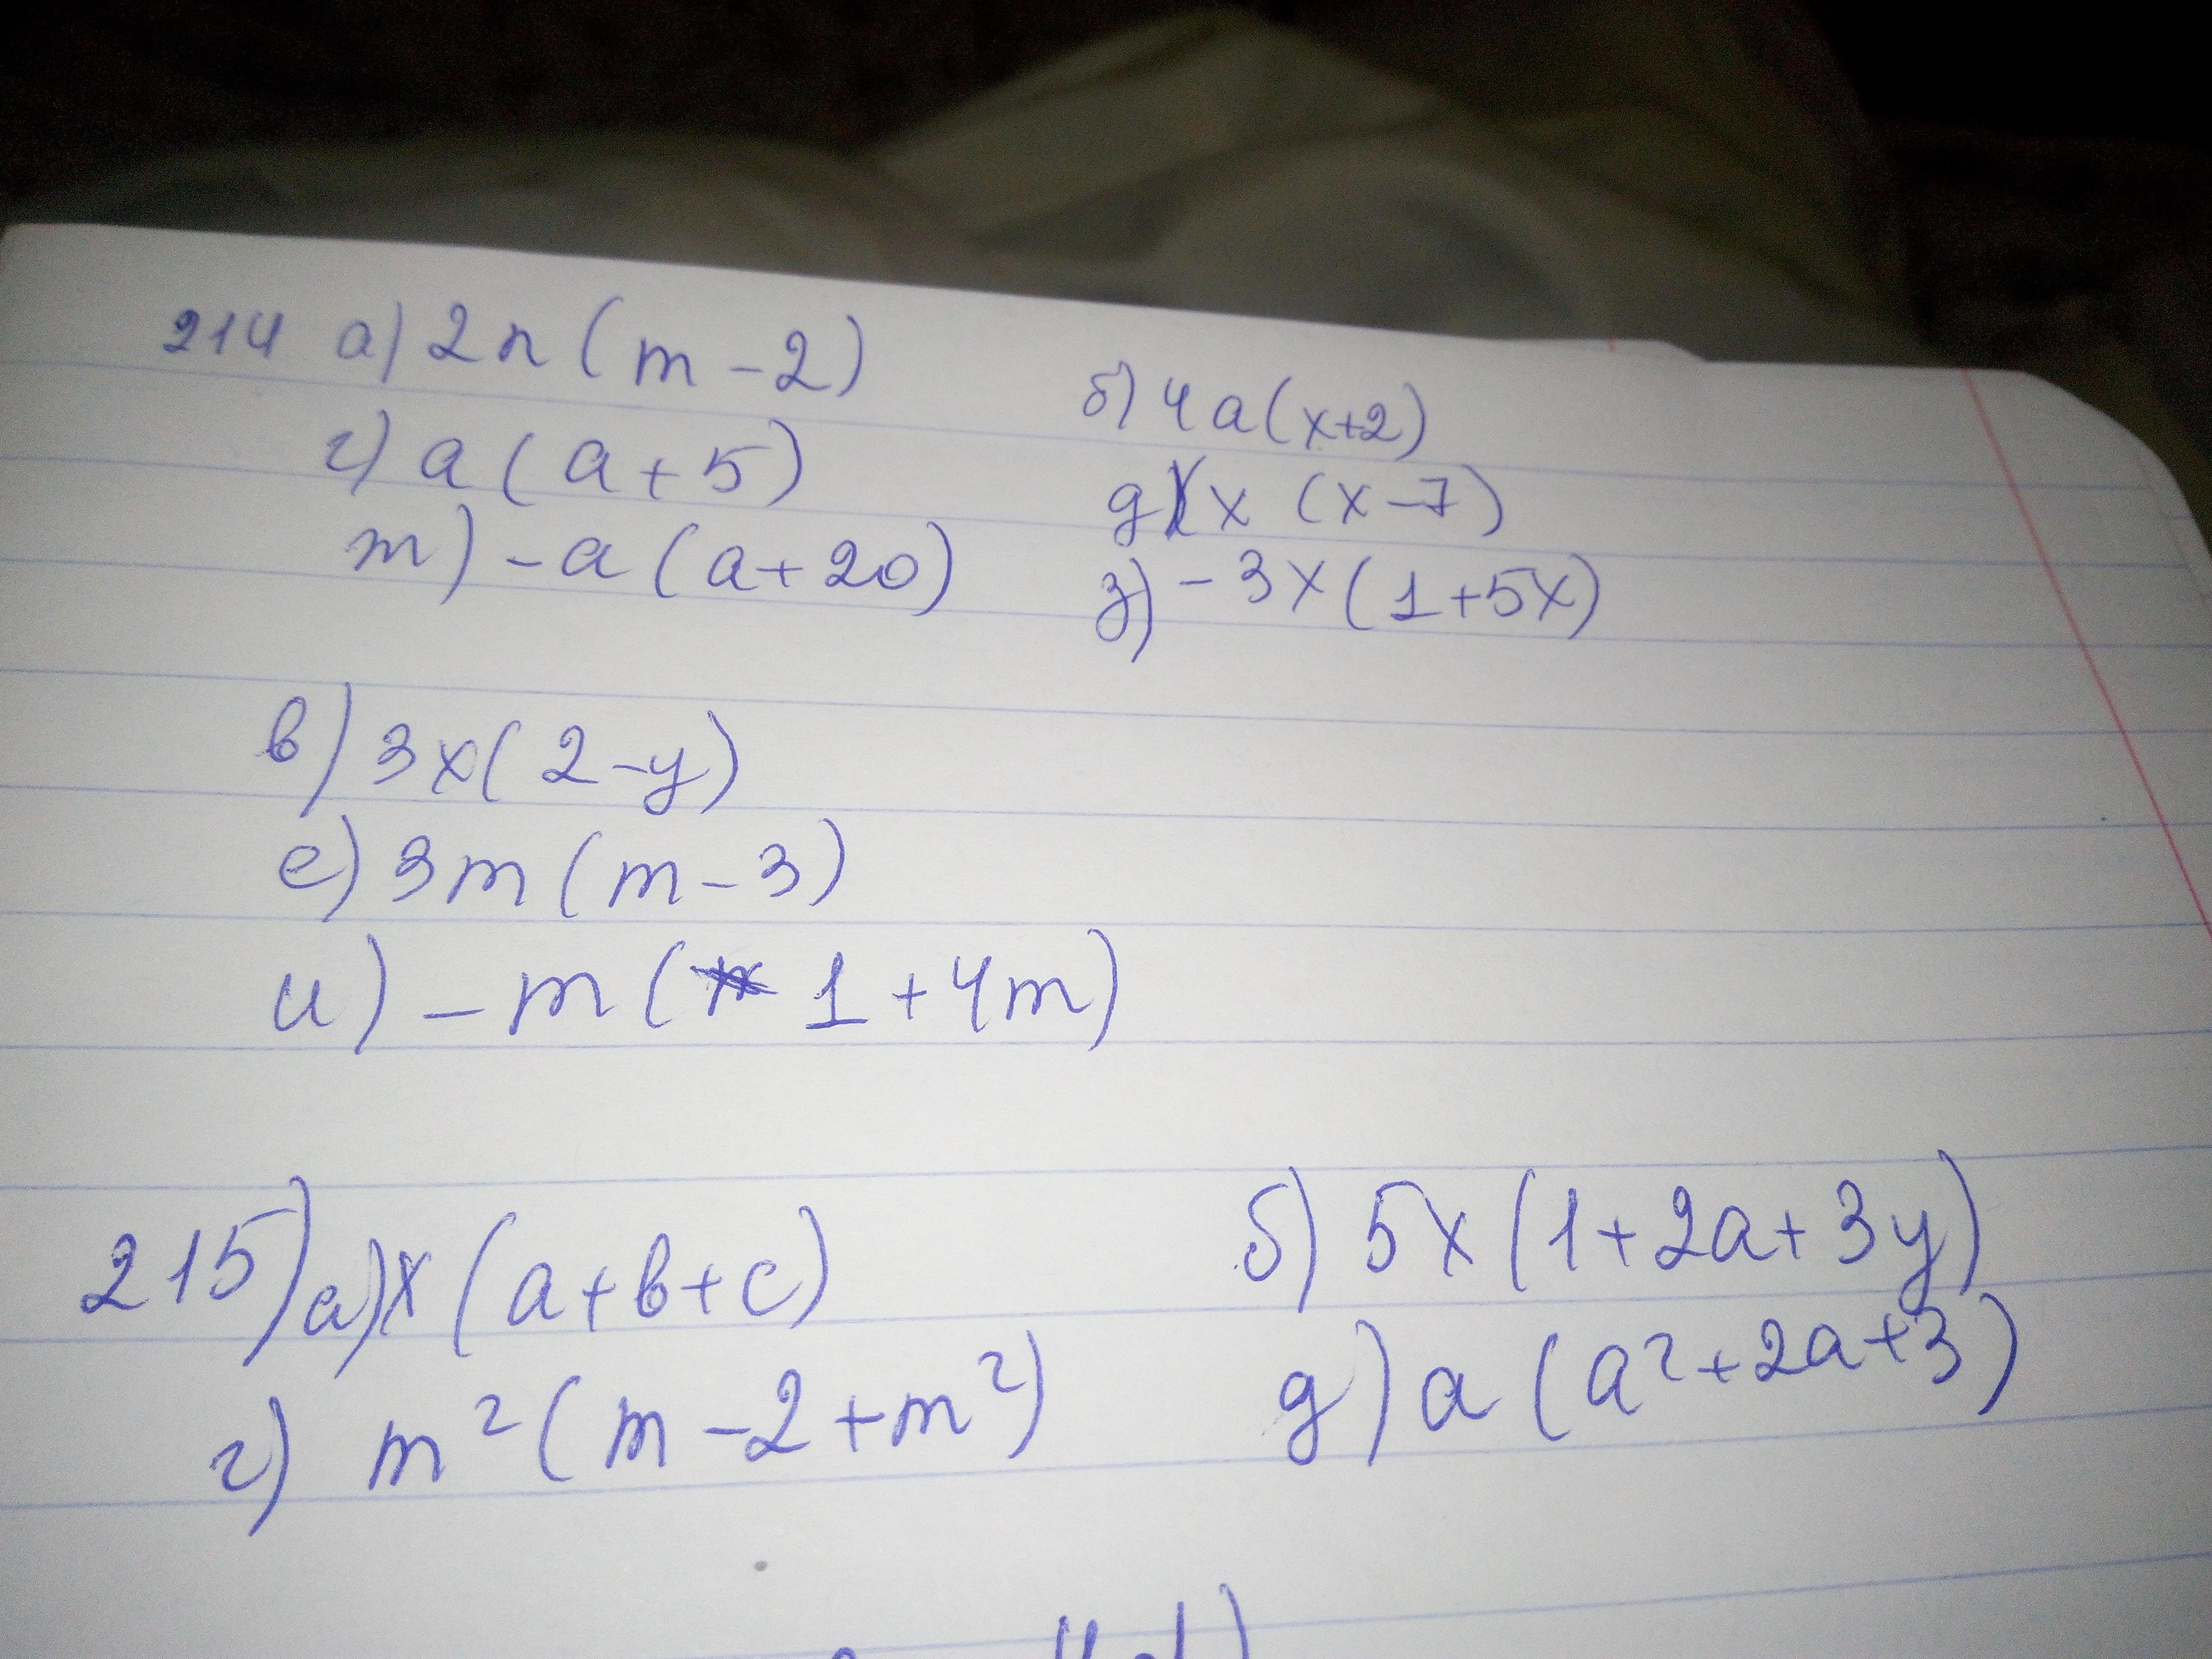 214 а) 2n(m-2)
б) 4a(x+2)
г) a(a+5)
д) x(x-7)
m) -a(a+20)
з) -3x(1+5x)
в) 3x(2-y)
е) 3m(m-3)
и) -m(1+4m)
215) а) x(a+b+c)
б) 5x(1+2a+3y)
г) m²(m-2+m²)
д) a(a²+2a+3)